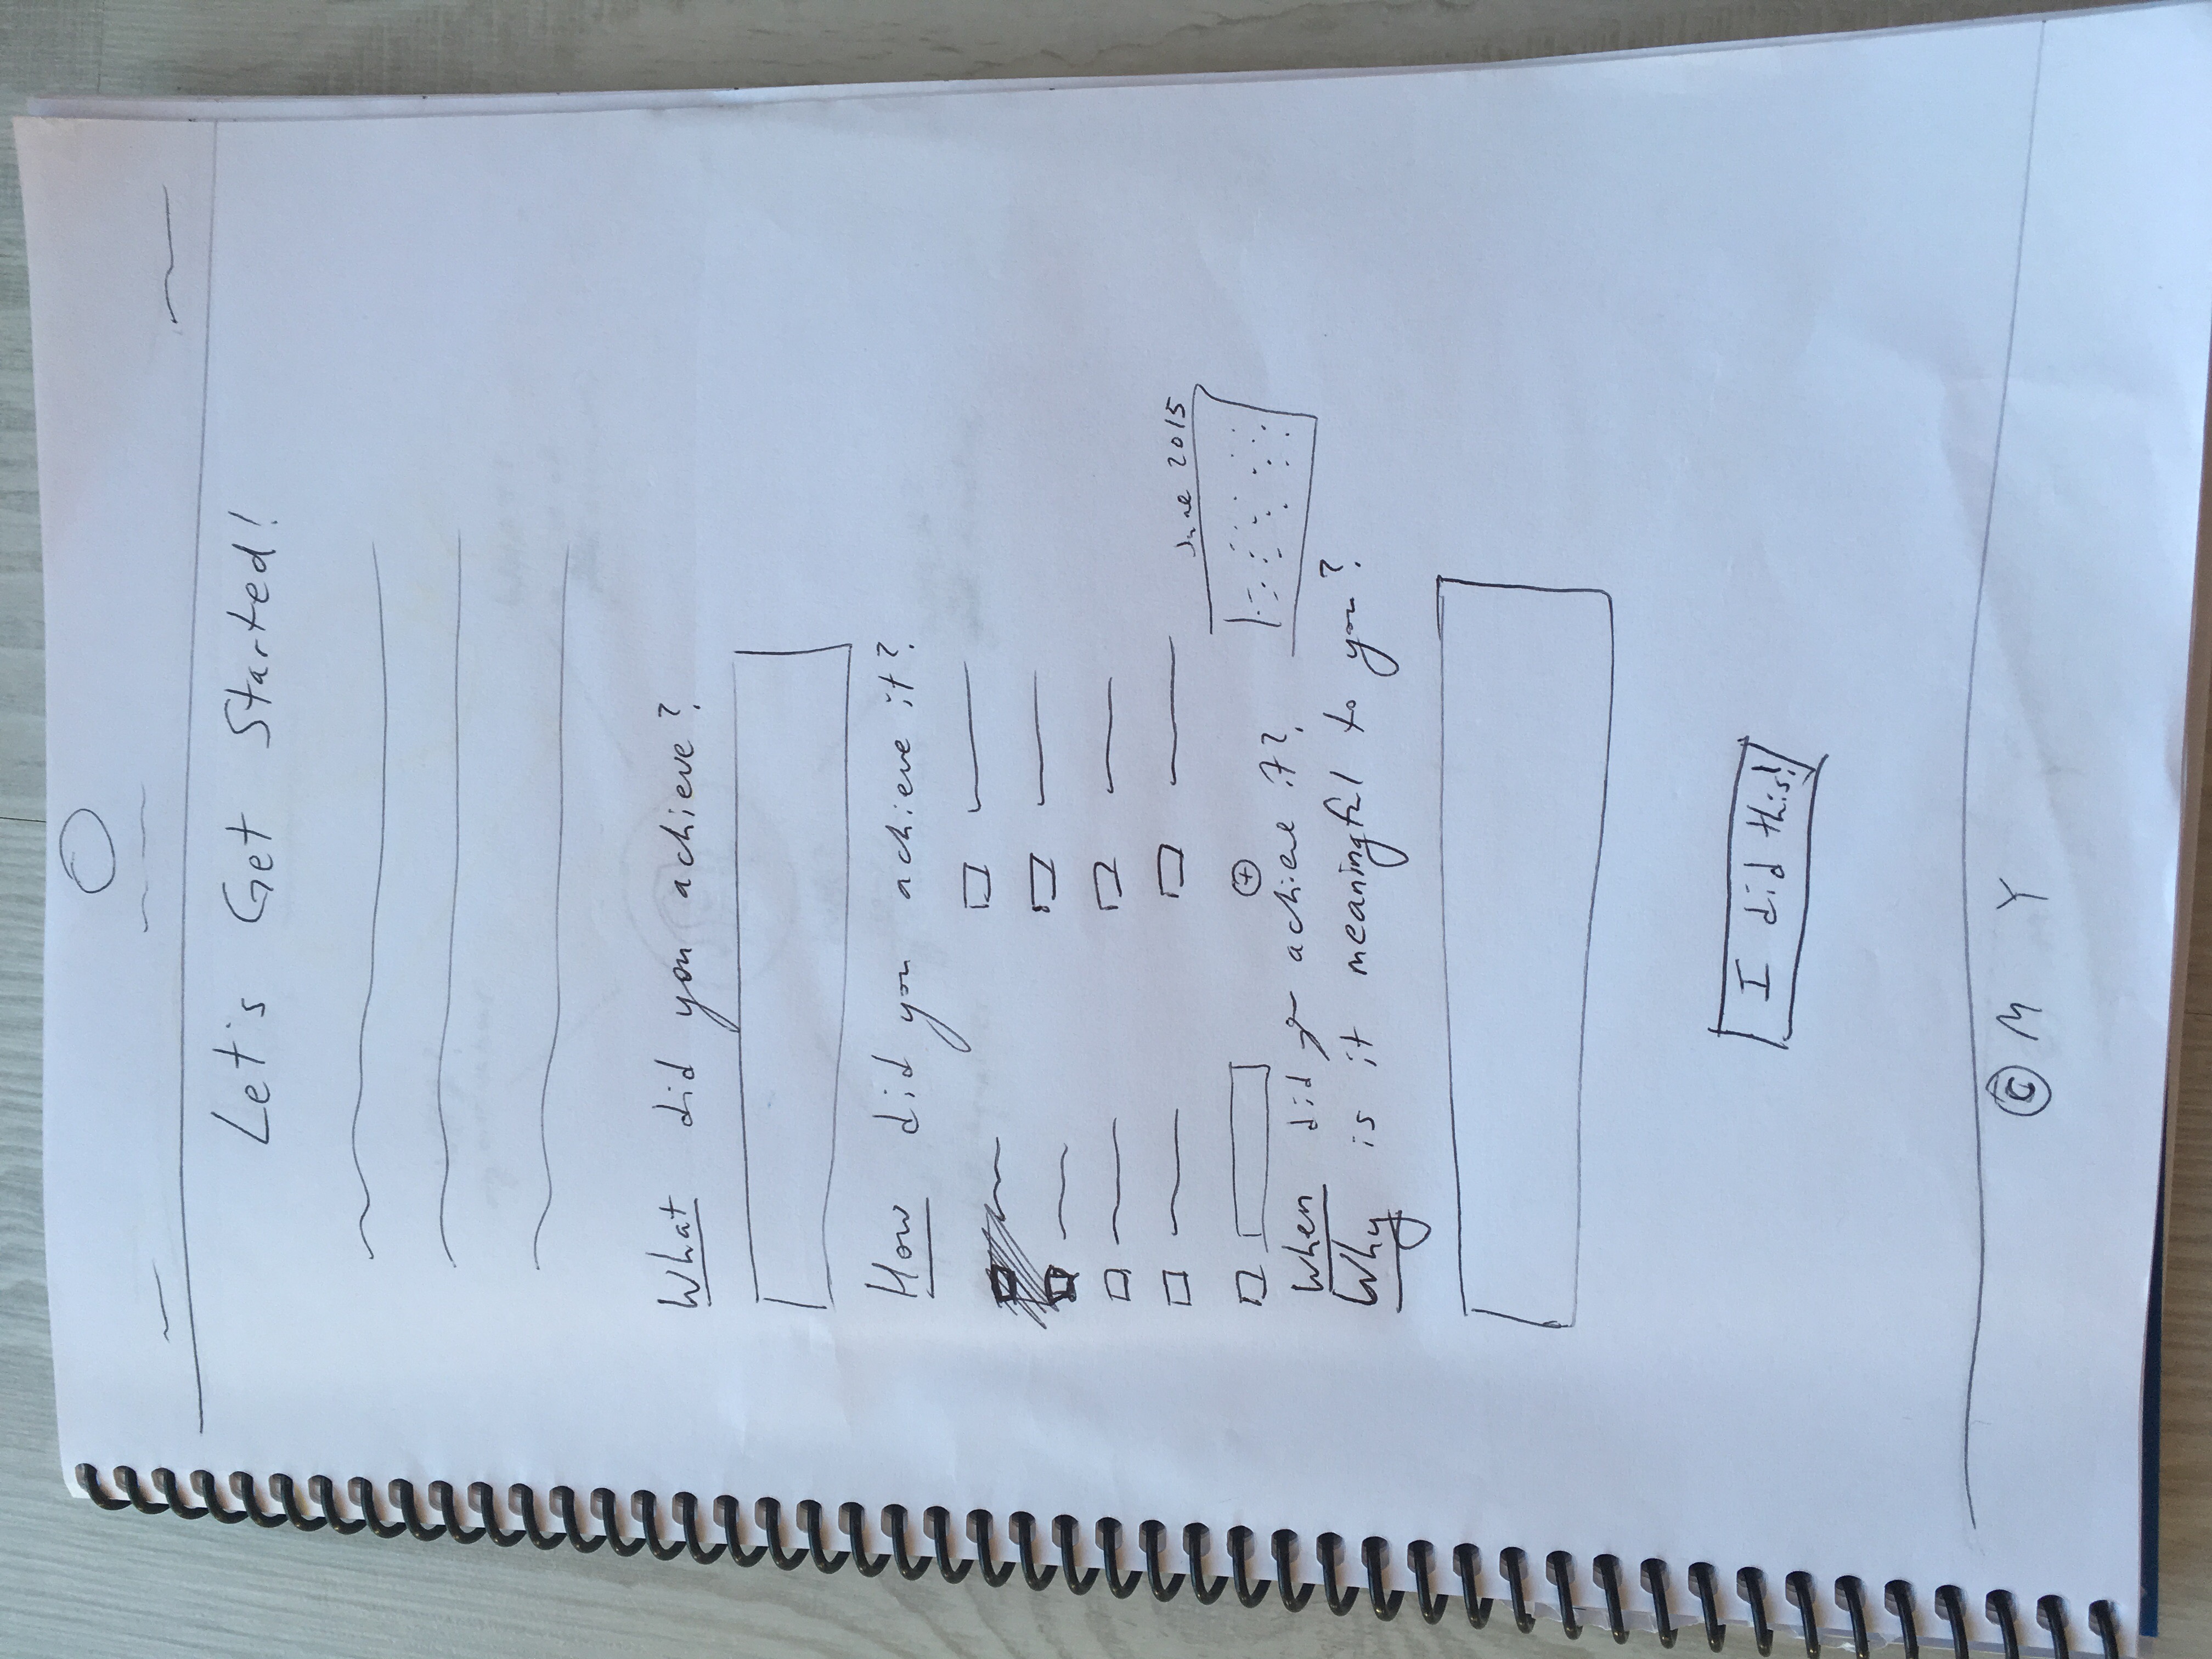 Let's Get Started!
What did you achieve?
How did you achieve it?
June 2015
+
When did you achieve it?
Why is it meaningful to you?
I did this!
© M Y